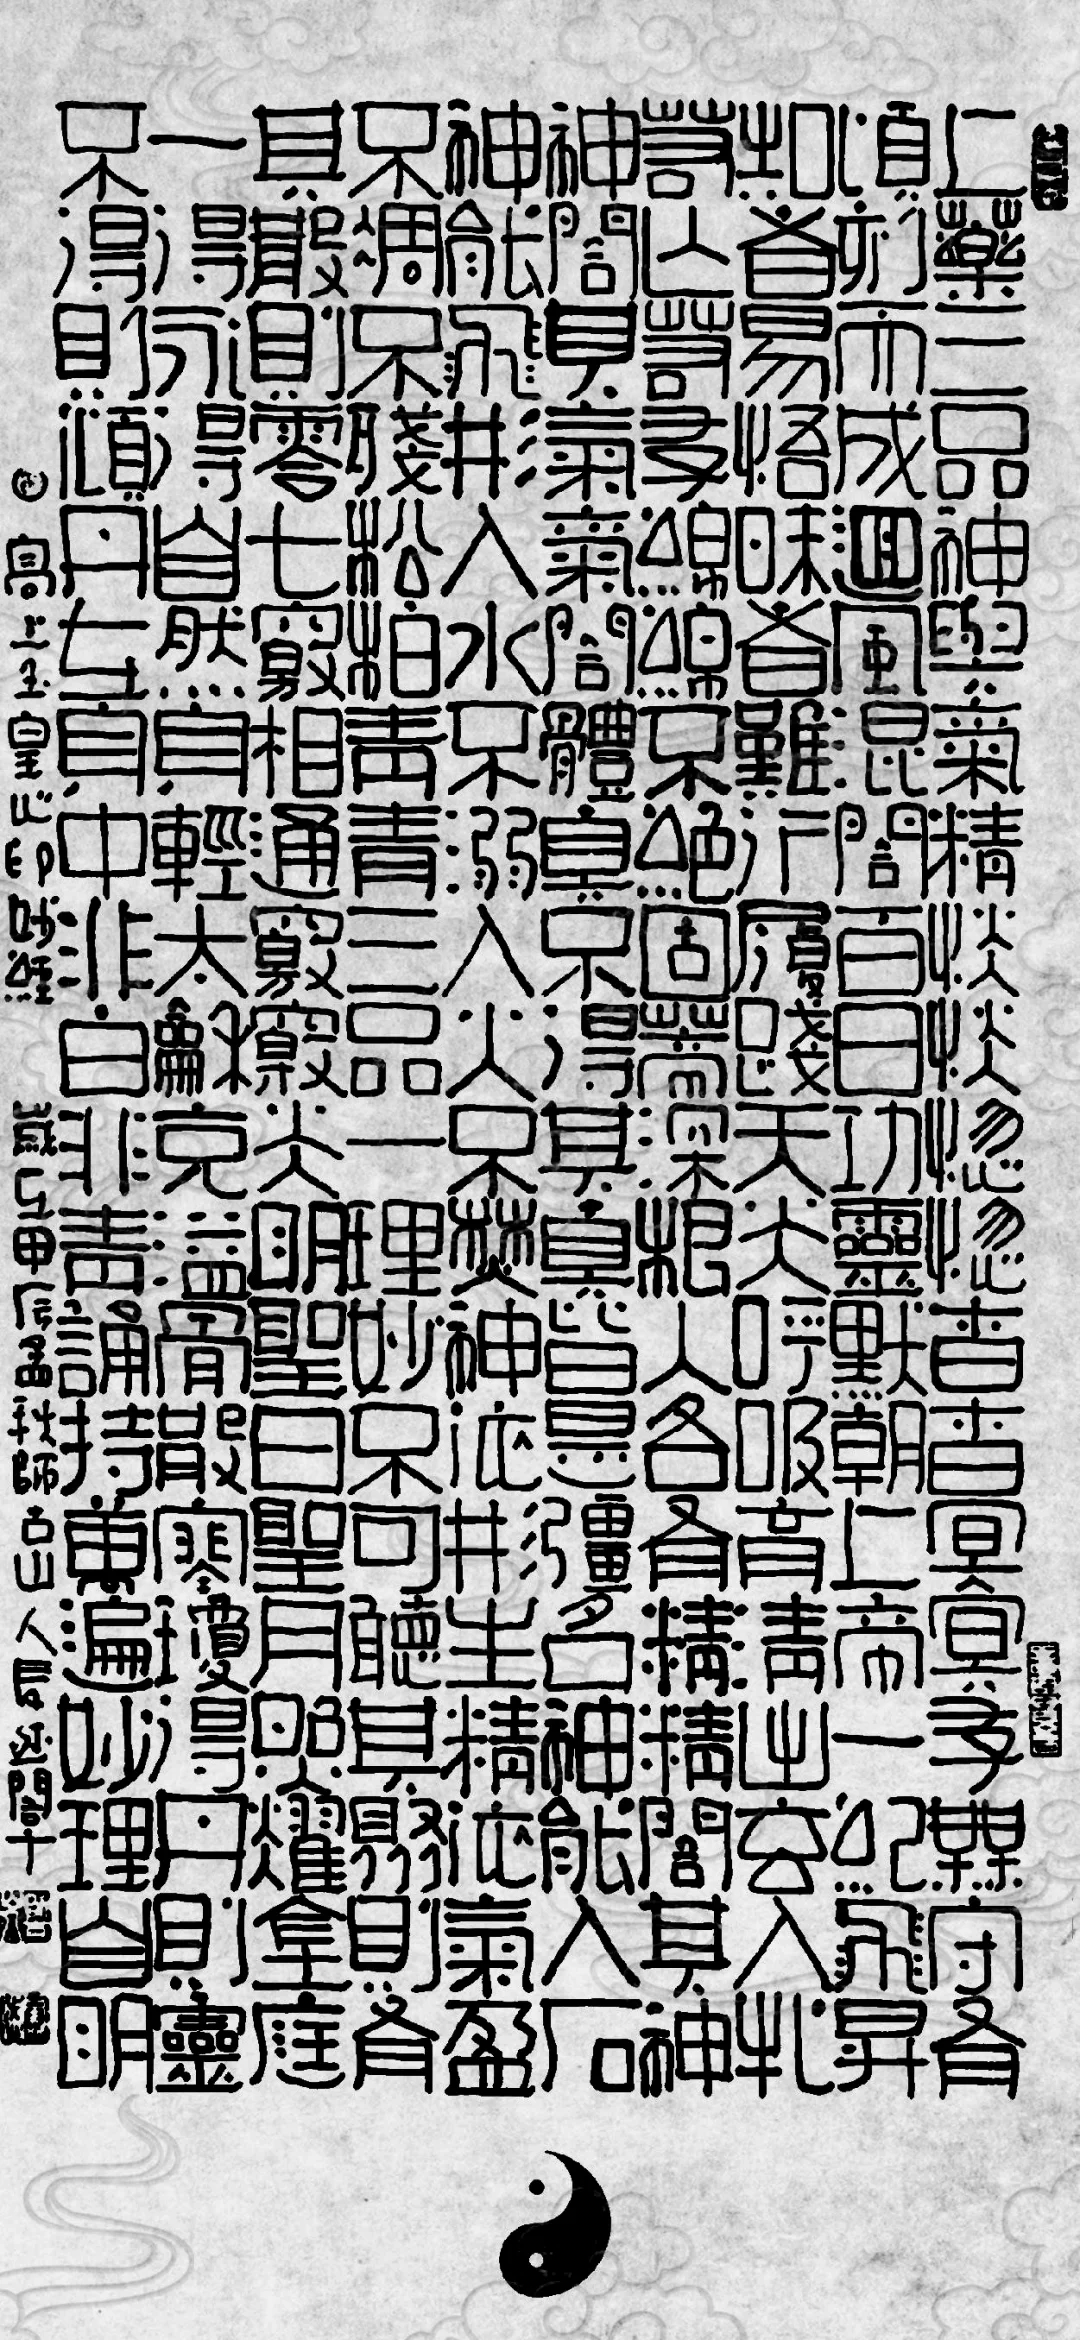 上藥三品神與氣精恍恍惚惚杳杳冥冥存無守有
頃刻而成迴風混合百日功靈默朝上帝一紀飛昇
知者易悟昧者難行履踐天光呼吸育清出玄入牝
若亡若存綿綿不絕固蒂深根人各有精精合其神
神合其氣氣合體真不得其真皆是強名神能入石
神能飛形入水不溺入火不焚神依形生精依氣盈
不凋不殘松柏青青三品一理妙不可聽其聚則有
其散則零七竅相通竅竅光明聖日聖月照耀金庭
一得永得自然身輕太和充溢骨散寒瓊得丹則靈
不得則傾丹在身中非白非青誦持萬遍妙理自明
高上玉皇心印妙經 歲在甲辰孟秋師古山人